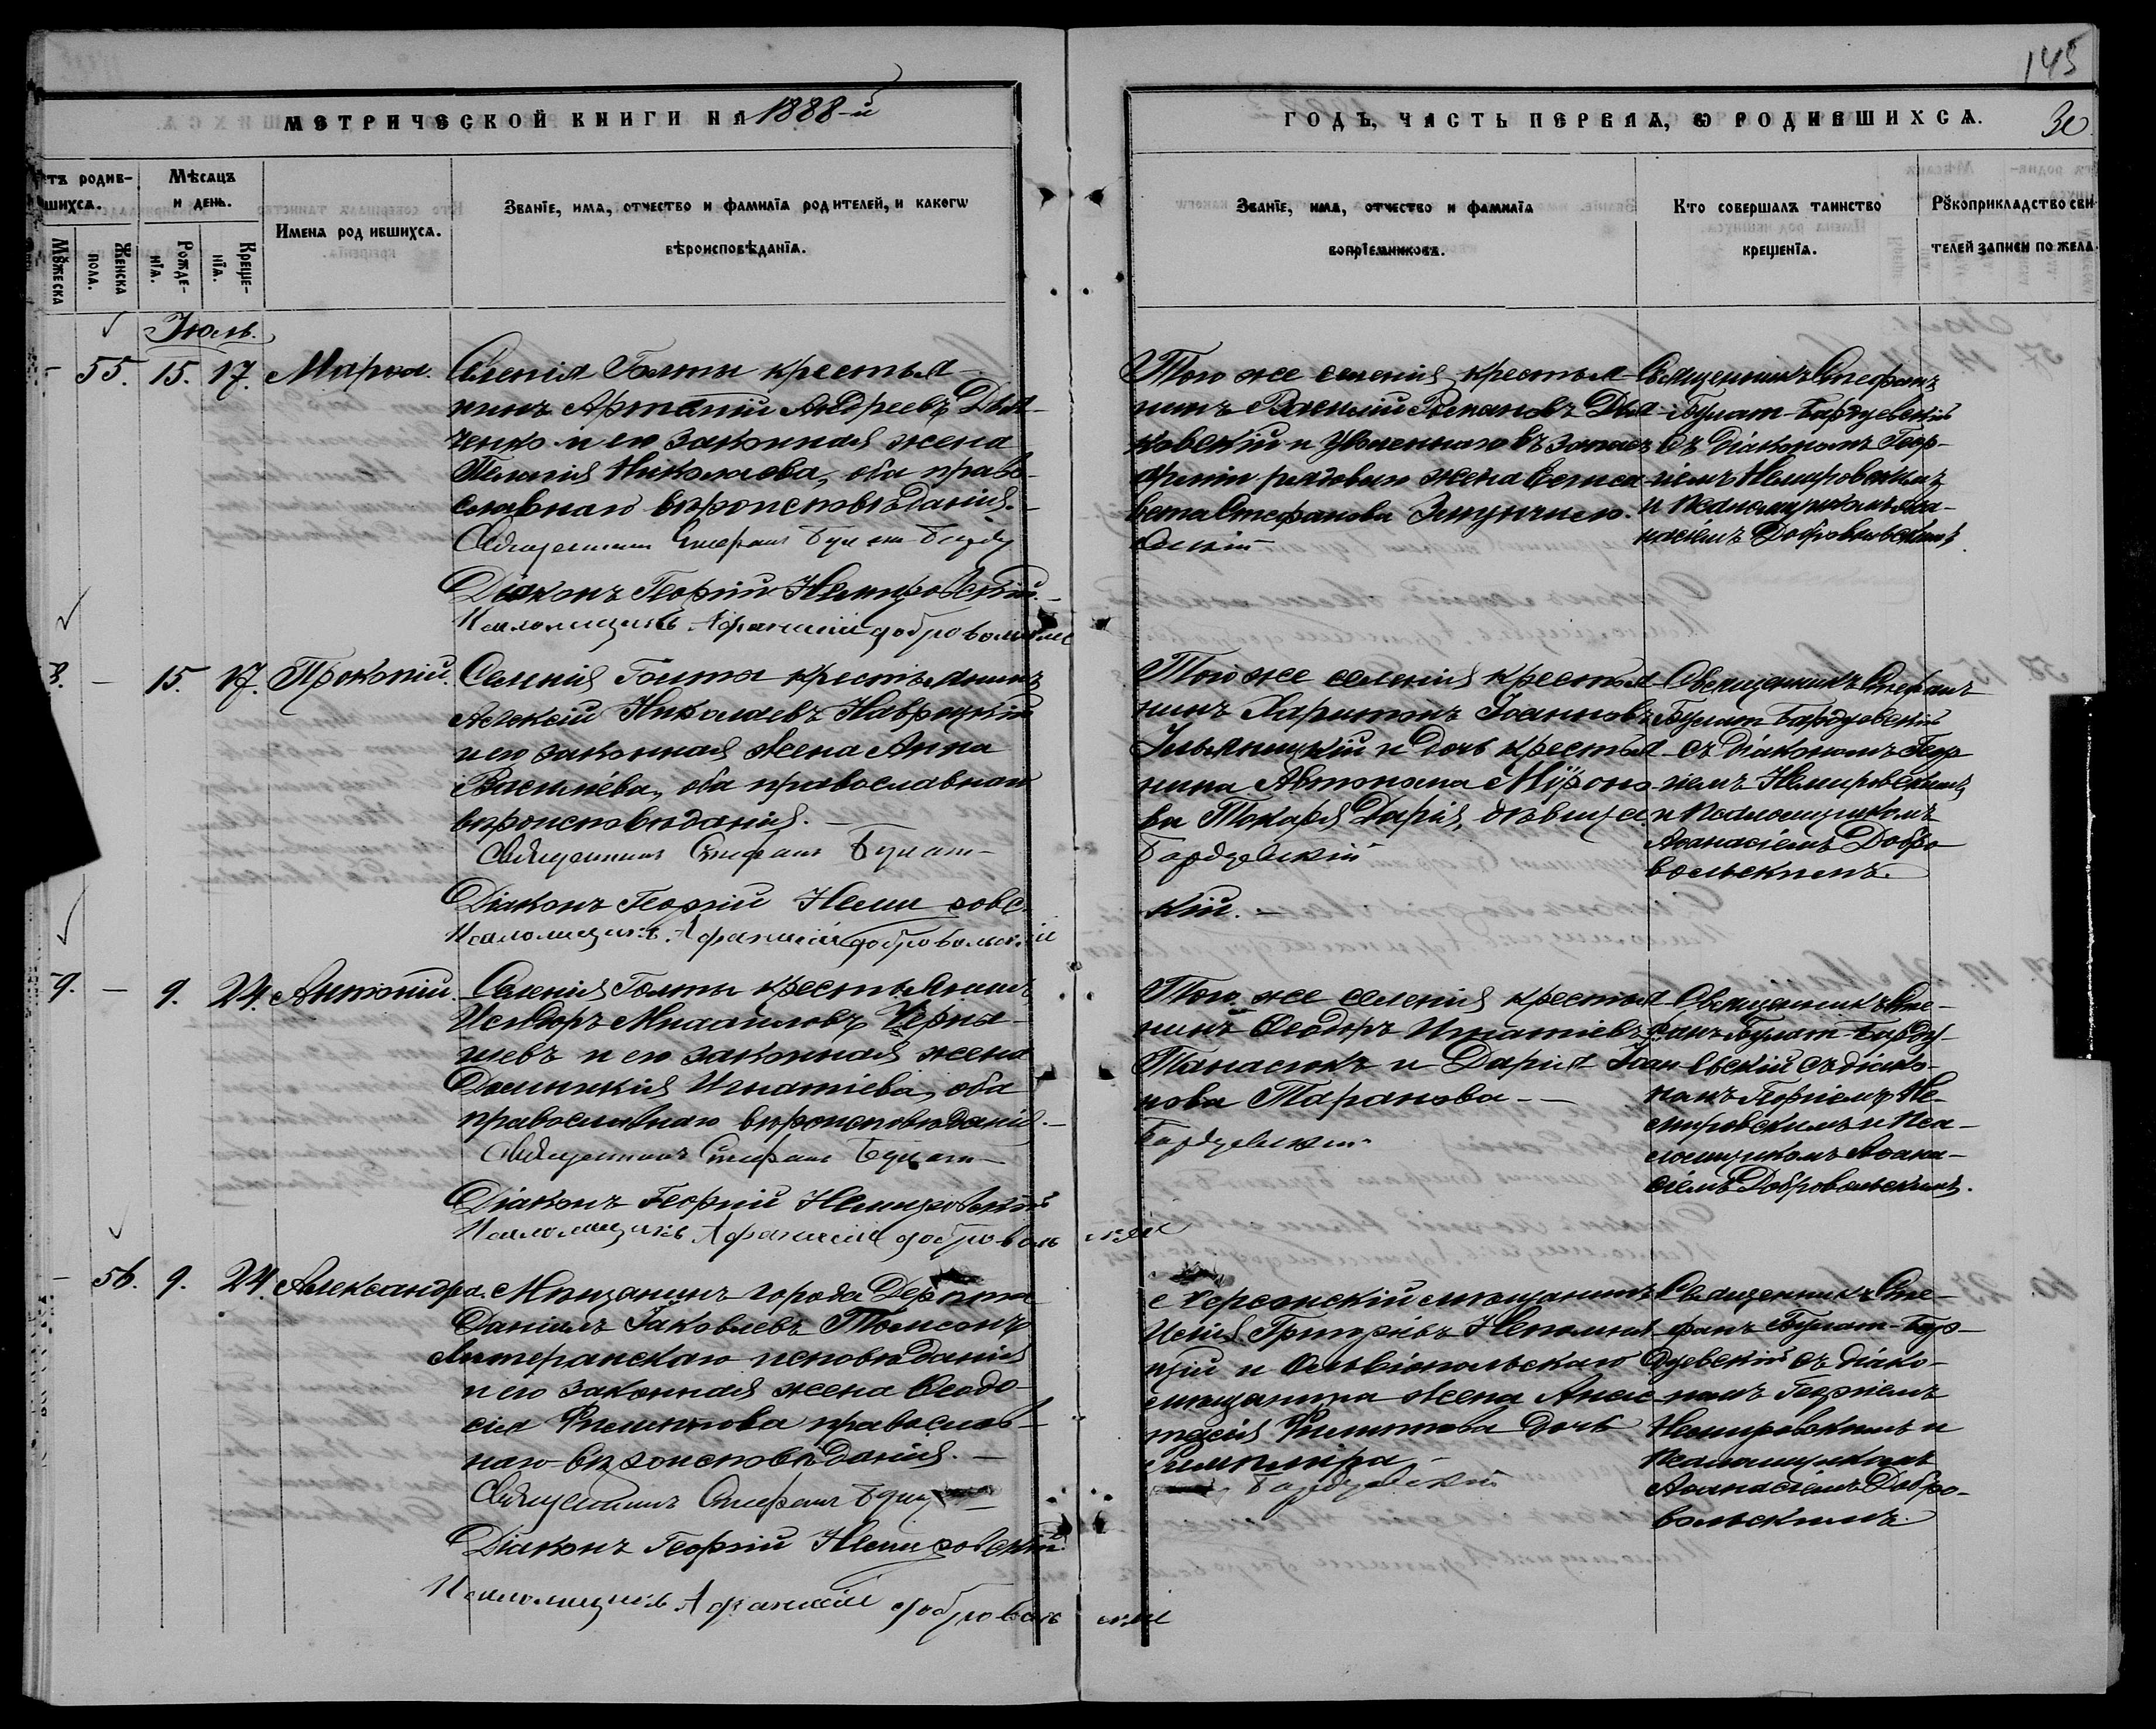 145
МЕТРИЧЕСКОЙ КНИГИ НА 1888-й
ГОДЪ, ЧАСТЬ ПЕРВАЯ, Ѡ РОДИВШИХСЯ.
30.
тъ родив-
шихся.
Мѣсяцъ
и день.
Мꙋжеска
Женска
пола.
Рожде-
нія.
Креще-
нія.
Имена родившихся.
Званіе, имя, отчество и фамилія родителей, и какогѡ
вѣроисповѣданія.
Званіе, имя, отчество и фамилія
воспріемниковъ.
Кто совершалъ таинство
крещенія.
Рꙋкоприкладство сви
телей записи по жела
Іюль.
- 55. 15. 17. Марѳа.
Селенія Голты крестья-
нинъ Артемій Андреевъ Дья-
ченко и его законная жена
Пелагія Николаева, оба право-
славнаго вѣроисповѣданія.
Священникъ Стефанъ Булат-Барду
Діаконъ Георгій Немировскій.
Псаломщикъ Афанасій Добровольскі
Того же селенія крестья-
нинъ Василій Романовъ Дья-
ковскій и уволеннаго въ запасъ
арміи рядоваго жена Елиса-
вета Стефанова
евскій
Священникъ Стефанъ
Булат-Бардуевскій
съ діакономъ Геор-
гіемъ Немировскимъ
и псаломщикомъ Аѳа-
насіемъ Добровольскимъ.
8. - 15. 17. Прокопій.
Селенія Голты крестьянинъ
Алексій Николаевъ Навроцкій
и его законная жена Анна
Васильева, оба православнаго
вѣроисповѣданія.
Священникъ Стефанъ Булат-
Діаконъ Георгій Немировс
Псаломщикъ Афанасій Добровольскій
Того же селенія крестья-
нинъ Харитонъ Іоанновъ
Ульяницкій и дочь крестья-
нина Автонома Мѵроно-
ва Токаря Дарія, дѣвица
Бардуевскій
кій.
Священникъ Стефанъ
Булат Бардуевскій
съ діакономъ Геор
гіемъ Немировскимъ
и псаломщикомъ
Аѳанасіемъ Добро
вольскимъ.
9. - 9. 24. Антоній.
Селенія Голты крестьянинъ
Исидоръ Михаиловъ Черны-
шевъ и его законная жена
Домникія Игнатіева, оба
православнаго вѣроисповѣданія.
Священникъ Стефанъ Булат-
Діаконъ Георгій Немировскій
Псаломщикъ Афанасій Добровольскій
Того же селенія крестья
нинъ Ѳеодоръ Игнатіевъ
Танасюкъ и Дарія Іоан
нова Таранова
Бардуевскій
Священникъ Сте-
фанъ Булат-Барду-
евскій съ діако-
номъ Георгіемъ Не-
мировскимъ и пса-
ломщикомъ Аѳана-
сіемъ Добровольскимъ.
- 56. 9. 24. Александра.
Мѣщанинъ города Дерпта
Даніилъ Іаковлевъ Томсонъ
Лютеранскаго исповѣданія
и его законная жена Ѳеодо-
сія Филиппова православ-
наго вѣроисповѣданія.
Священникъ Стефанъ Булат
Діаконъ Георгій Немировскій.
Псаломщикъ Афанасій Добровольскій
Херсонскій мѣщанинъ
Исаія Григоріевъ Непомня-
щій и Ольвіопольскаго
мѣщанина жена Анас
тасія Филиппова дочь
Бардуевскій
Священникъ Сте-
фанъ Булат-Бар-
дуевскій съ діако-
номъ Георгіемъ
Немировскимъ и
псаломщикомъ
Аѳанасіемъ Добро-
вольскимъ.